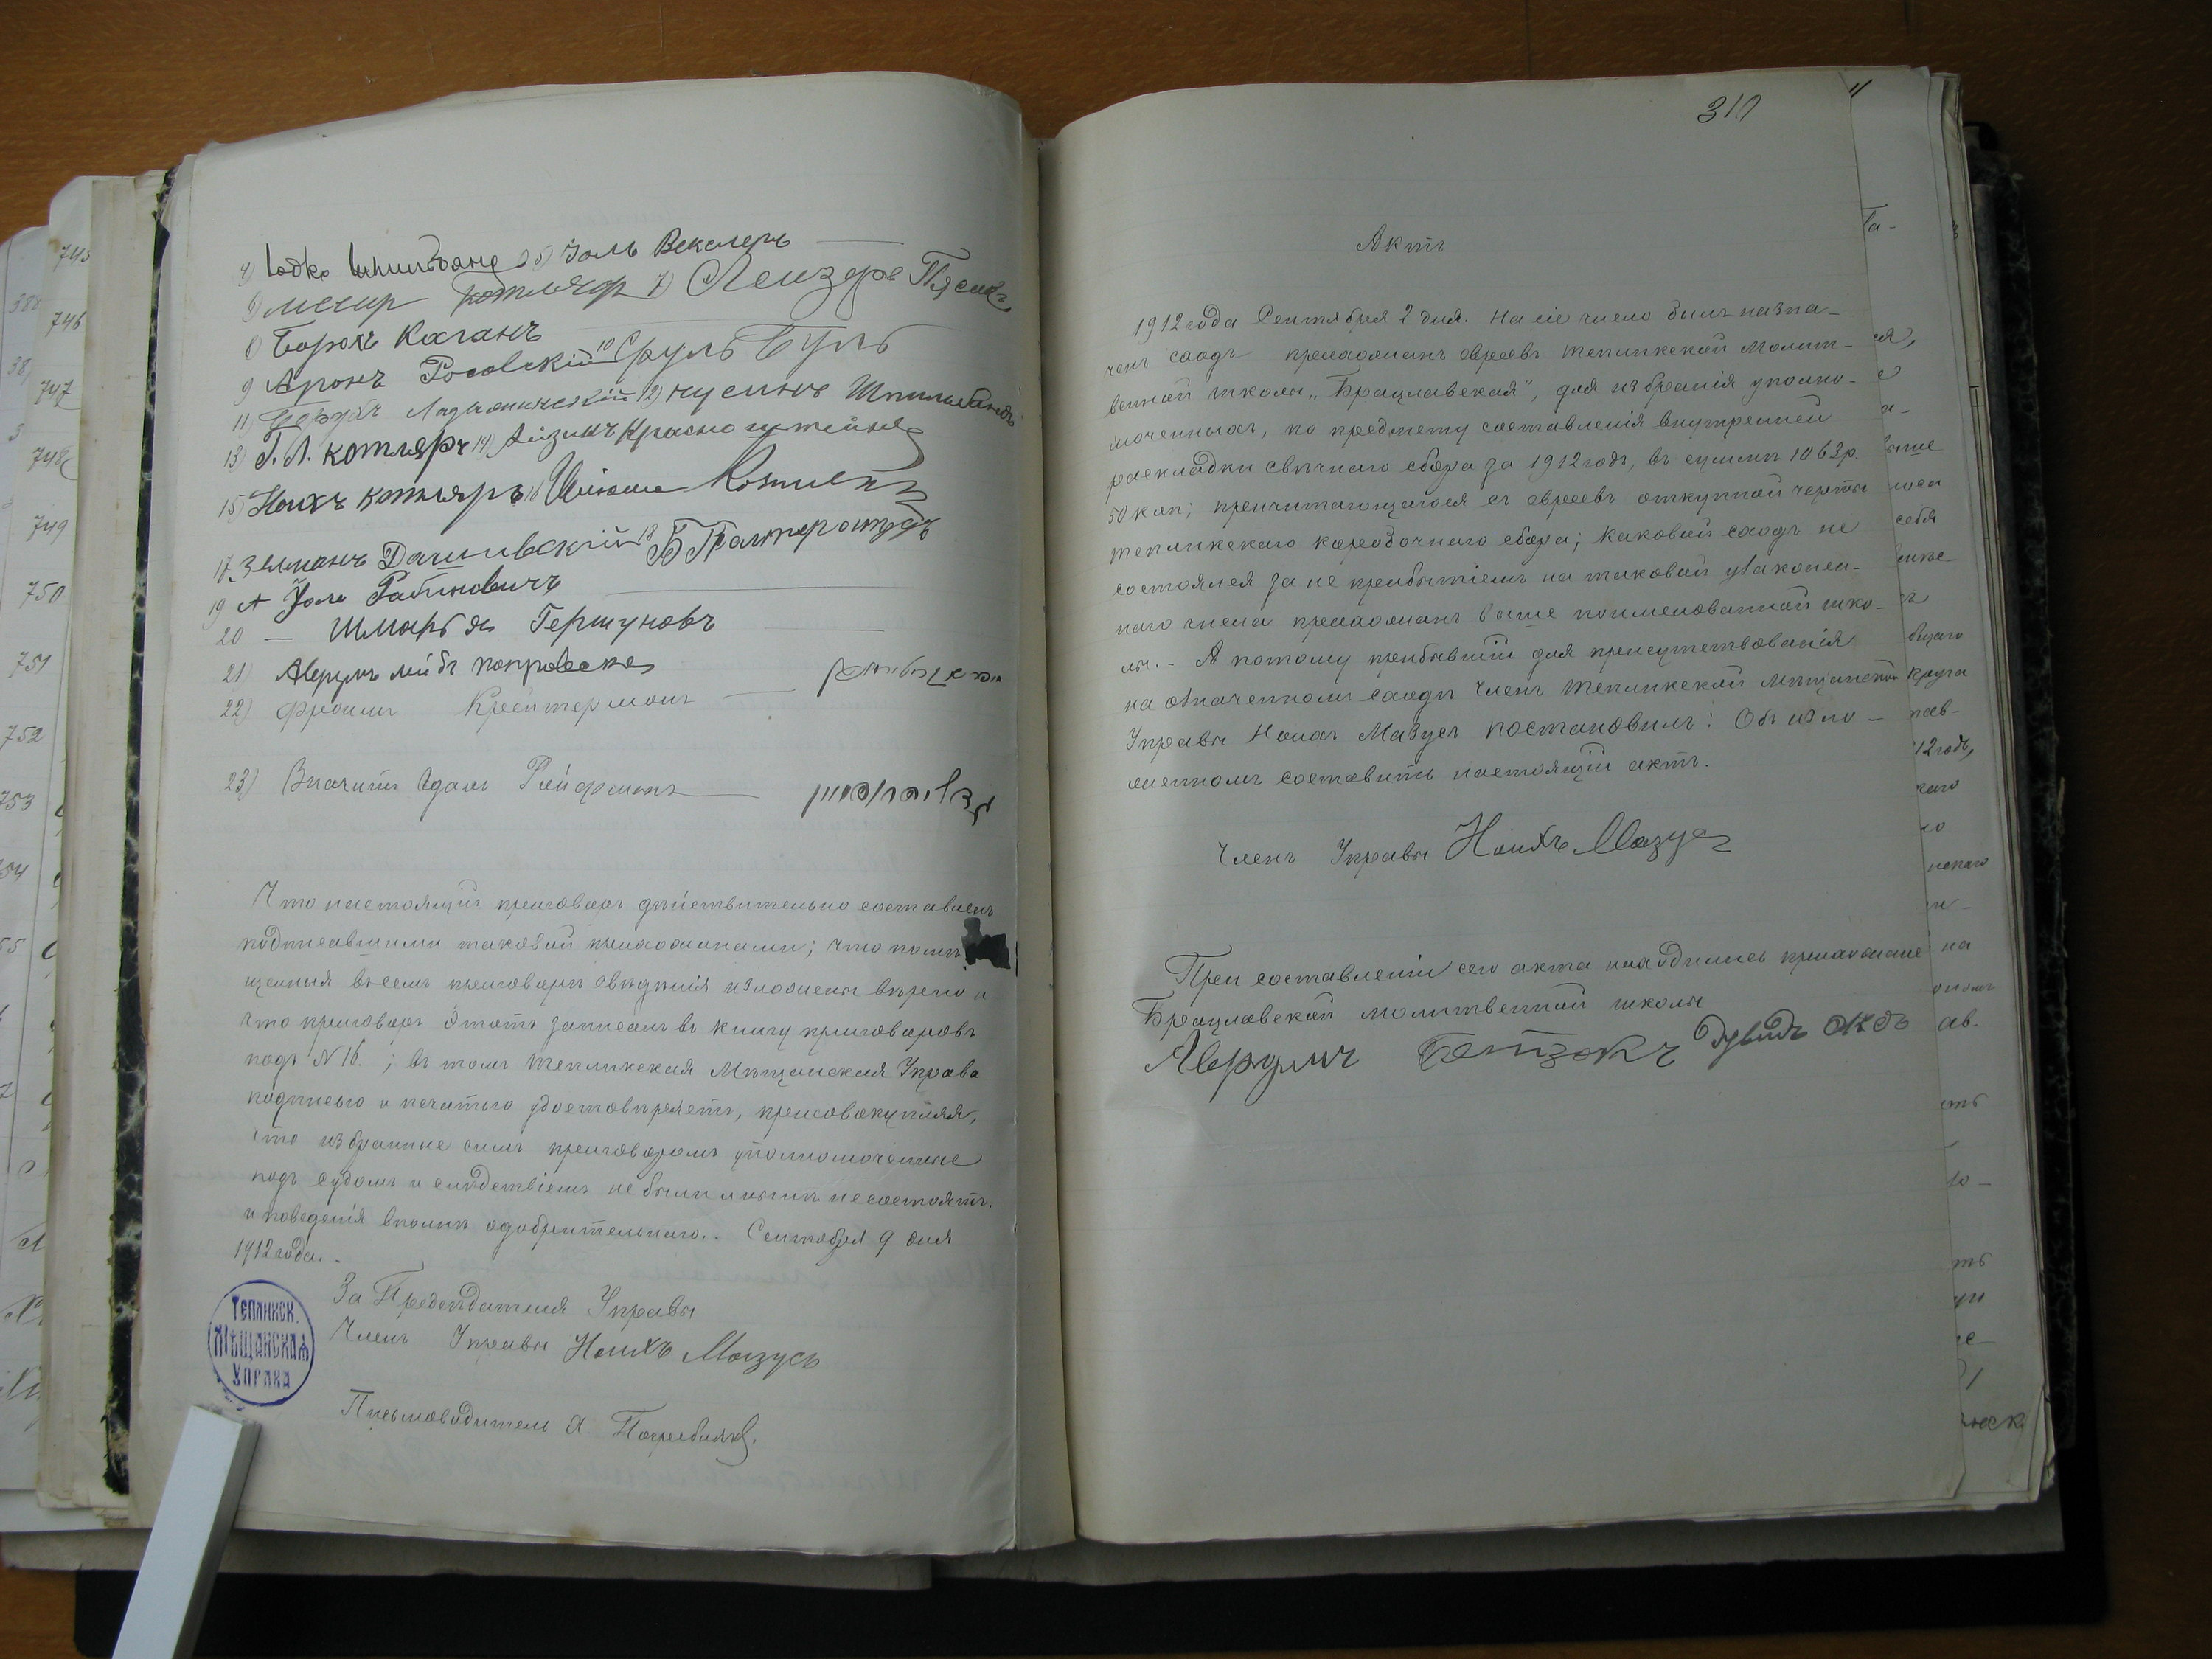 4) Іодко Шпильбанд 5) Іоль Векслеръ
6) Меир Котляр 7) Лейзеръ Пясикъ
8) Борохъ Каганъ
9 Аронъ Росовскій 10 Сруль Буль
11) Ладыжинскій 12) Нусинъ Шпильбандъ
13) Г. Л. Котляръ 14) Айзикъ Красноштейнъ
15) Ноихъ Котляръ 16
17. Зелманъ Дашевскій 18 Б
19 А Іоль Рабиновичъ
20 — Шмарья Гершуновъ
21) Аврумъ Лейбъ Покровска
22) Фроимъ Крейтерманъ
23) Значитъ Идаль Ройфманъ
Что настоящій приговоръ дѣйствительно составленъ
подписавшими таковой прихожанами; что помѣ
щенныя въ семъ приговорѣ свѣдѣнія изложены вѣрно и
что приговоръ этотъ записанъ въ книгу приговоровъ
подъ № 16.; въ томъ Тепликская Мѣщанская Управа
подписью и печатью удостовѣряетъ, присовокупляя,
что избранные симъ приговоромъ уполномоченные
подъ судомъ и слѣдствіемъ не были и нынѣ не состоятъ.
и поведенія вполнѣ одобрительнаго. - Сентября 9 дня
1912 года. -
За Предсѣдателя Управы
Членъ Управы Ноихъ Мазусъ
Письмоводитель Я.
Тепликск.
Мѣщанская
Управа
310
Актъ
1912 года Сентября 2 дня. На сіе число былъ назна-
ченъ сходъ прихожанъ евреевъ Тепликской Молит-
венной школы „Брацлавская", для избранія уполно-
моченныхъ, по предмету составленія внутренней
раскладки свѣчнаго сбора за 1912 годъ, въ суммѣ 1063 р.
50 коп; причитающагося съ евреевъ откупной черты
Тепликскаго коробочнаго сбора; каковой сходъ не
состоялся за не прибытіемъ на таковой узаконен-
наго числа прихожанъ выше поименованной шко-
лы. - А потому прибывшій для присутствованія
на означенномъ сходѣ Членъ Тепликской Мѣщанской
Управы Ноихъ Мазусъ постановилъ: Объ изло-
женномъ составить настоящій актъ.
Членъ Управы Ноихъ Мазус
При составленіи сего акта находились прихожане
Брацлавской молитвенной школы
Аврумъ Бетзокъ Дувидъ Окс
743
746
747
748
749
750
751
752
753